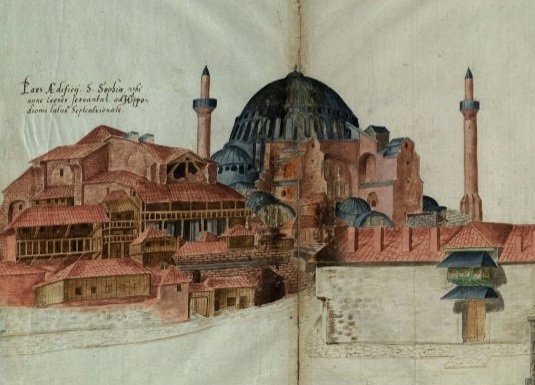 Pars Ædificij S. Sophiæ, ubi
nunc leones servantur ad Hippo-
dromi latus Septentrionale.